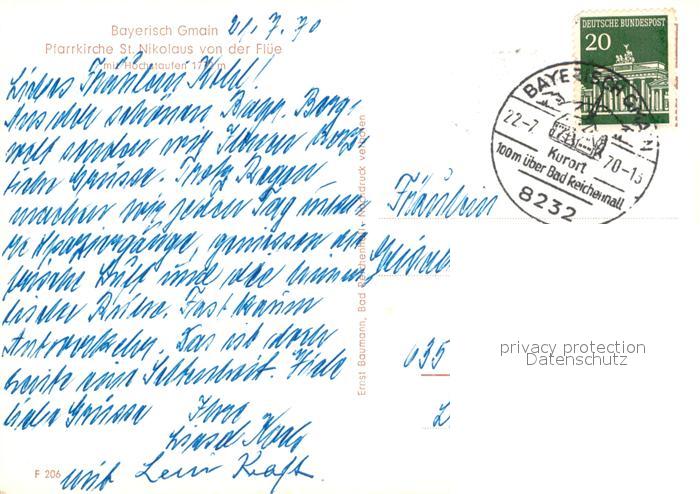 Bayerisch Gmain 21.7.70
Pfarrkirche St. Nikolaus von der Flüe
mit Hochstaufen 17 m
Liebes Fräulein Kohl!
Aus der schönen Bayr. Berg-
welt senden wir Ihnen herz-
liche Grüsse. Trotz Regen
machen wir jeden Tag unse-
re Spaziergänge, genissen die
frische Luft und die himm-
lische Ruhe. Fast kaum
Autoverkehr. Das ist doch
heute eine Seltenheit. Viele
liebe Grüsse Ihre
mit Kraft
F 206
Ernst Baumann, Bad Reichenhall, Nachdruck verboten
DEUTSCHE BUNDESPOST
20
BAYERISCH GMAIN
22-7. 70-13
Kurort
100m über Bad Reichenhall
8232
Fräulein
635
privacy protection
Datenschutz